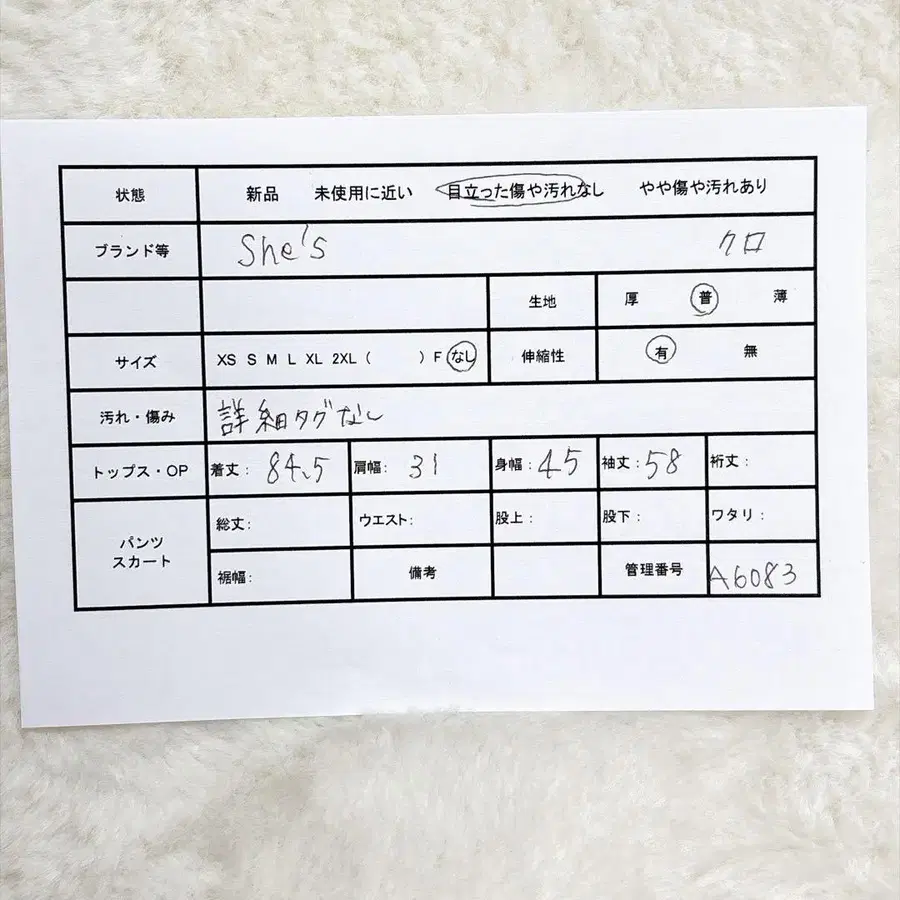 状態 新品 未使用に近い 目立った傷や汚れなし やや傷や汚れあり
ブランド等 She's クロ
生地 厚 普 薄
サイズ XS S M L XL 2XL ( ) F なし 伸縮性 有 無
汚れ・傷み 詳細タグなし
トップス・OP 着丈: 84.5 肩幅: 31 身幅: 45 袖丈: 58 裄丈:
パンツ スカート 総丈: ウエスト: 股上: 股下: ワタリ:
裾幅: 備考 管理番号 A6083